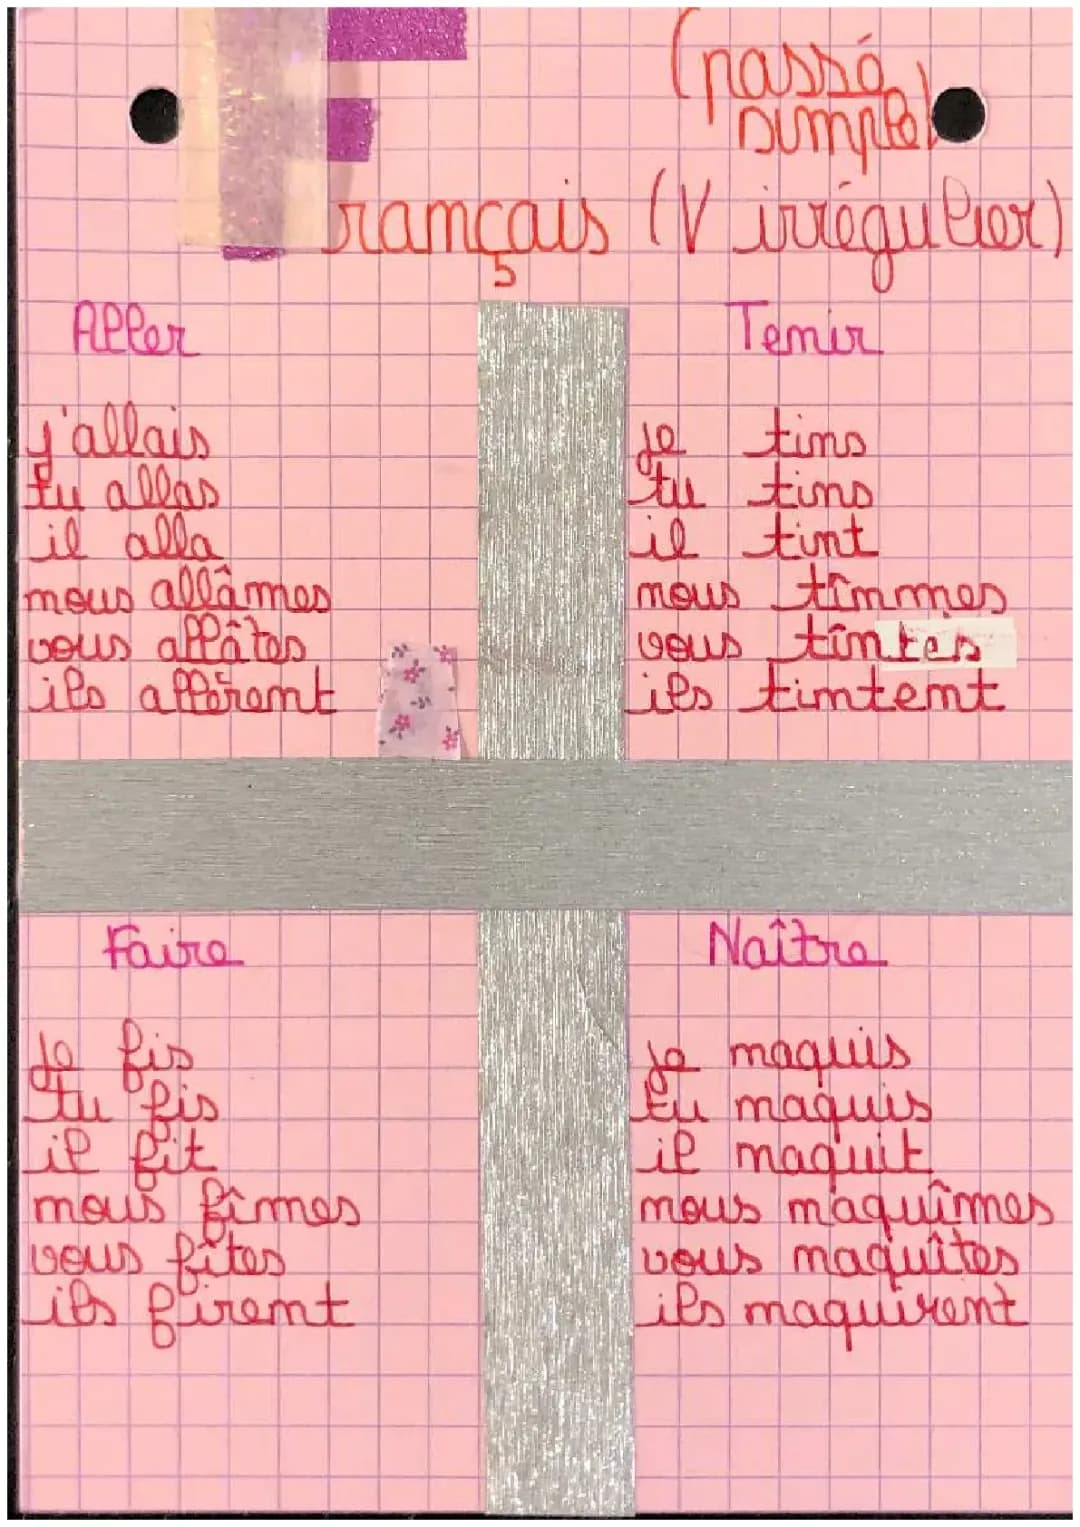 (passé
simple)
rançais (V irrégulier)
Aller
j'allais
tu allas
il alla
nous allâmes
vous allâtes
ils allèrent
Tenir
je tins
tu tins
il tint
nous tînmmes
vous tîntes
ils tintent
Faire
je fis
tu fis
il fit
nous fîmes
vous fîtes
ils firent
Naître
je naquis
tu naquis
il naquit
nous naquîmes
vous naquîtes
ils naquirent